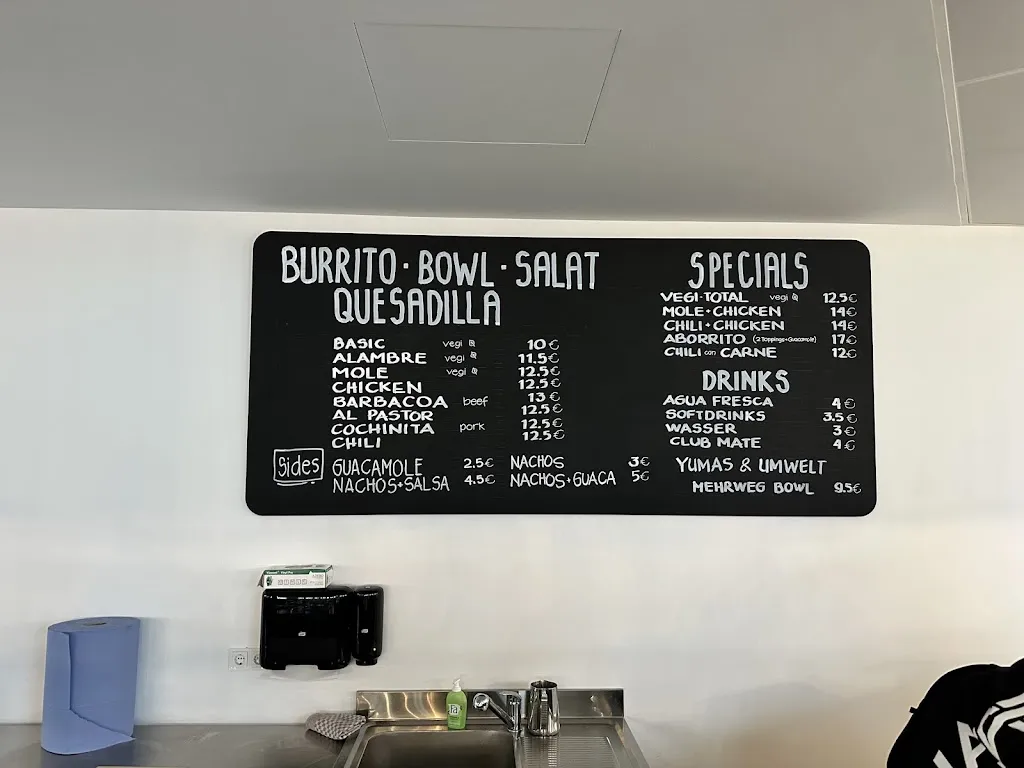 BURRITO · BOWL · SALAT
QUESADILLA
BASIC vegi 10€
ALAMBRE vegi 11.5€
MOLE vegi 12.5€
CHICKEN 12.5€
BARBACOA beef 13€
AL PASTOR 12.5€
COCHINITA pork 12.5€
CHILI 12.5€
Sides
GUACAMOLE 2.5€ NACHOS 3€
NACHOS+SALSA 4.5€ NACHOS+GUACA 5€
SPECIALS
VEGI·TOTAL vegi 12.5€
MOLE+CHICKEN 14€
CHILI+CHICKEN 14€
ABORRITO (2 Toppings+Guacamole) 17€
CHILI con CARNE 12€
DRINKS
AGUA FRESCA 4€
SOFTDRINKS 3.5€
WASSER 3€
CLUB MATE 4€
YUMAS & UMWELT
MEHRWEG BOWL 9.5€
fa